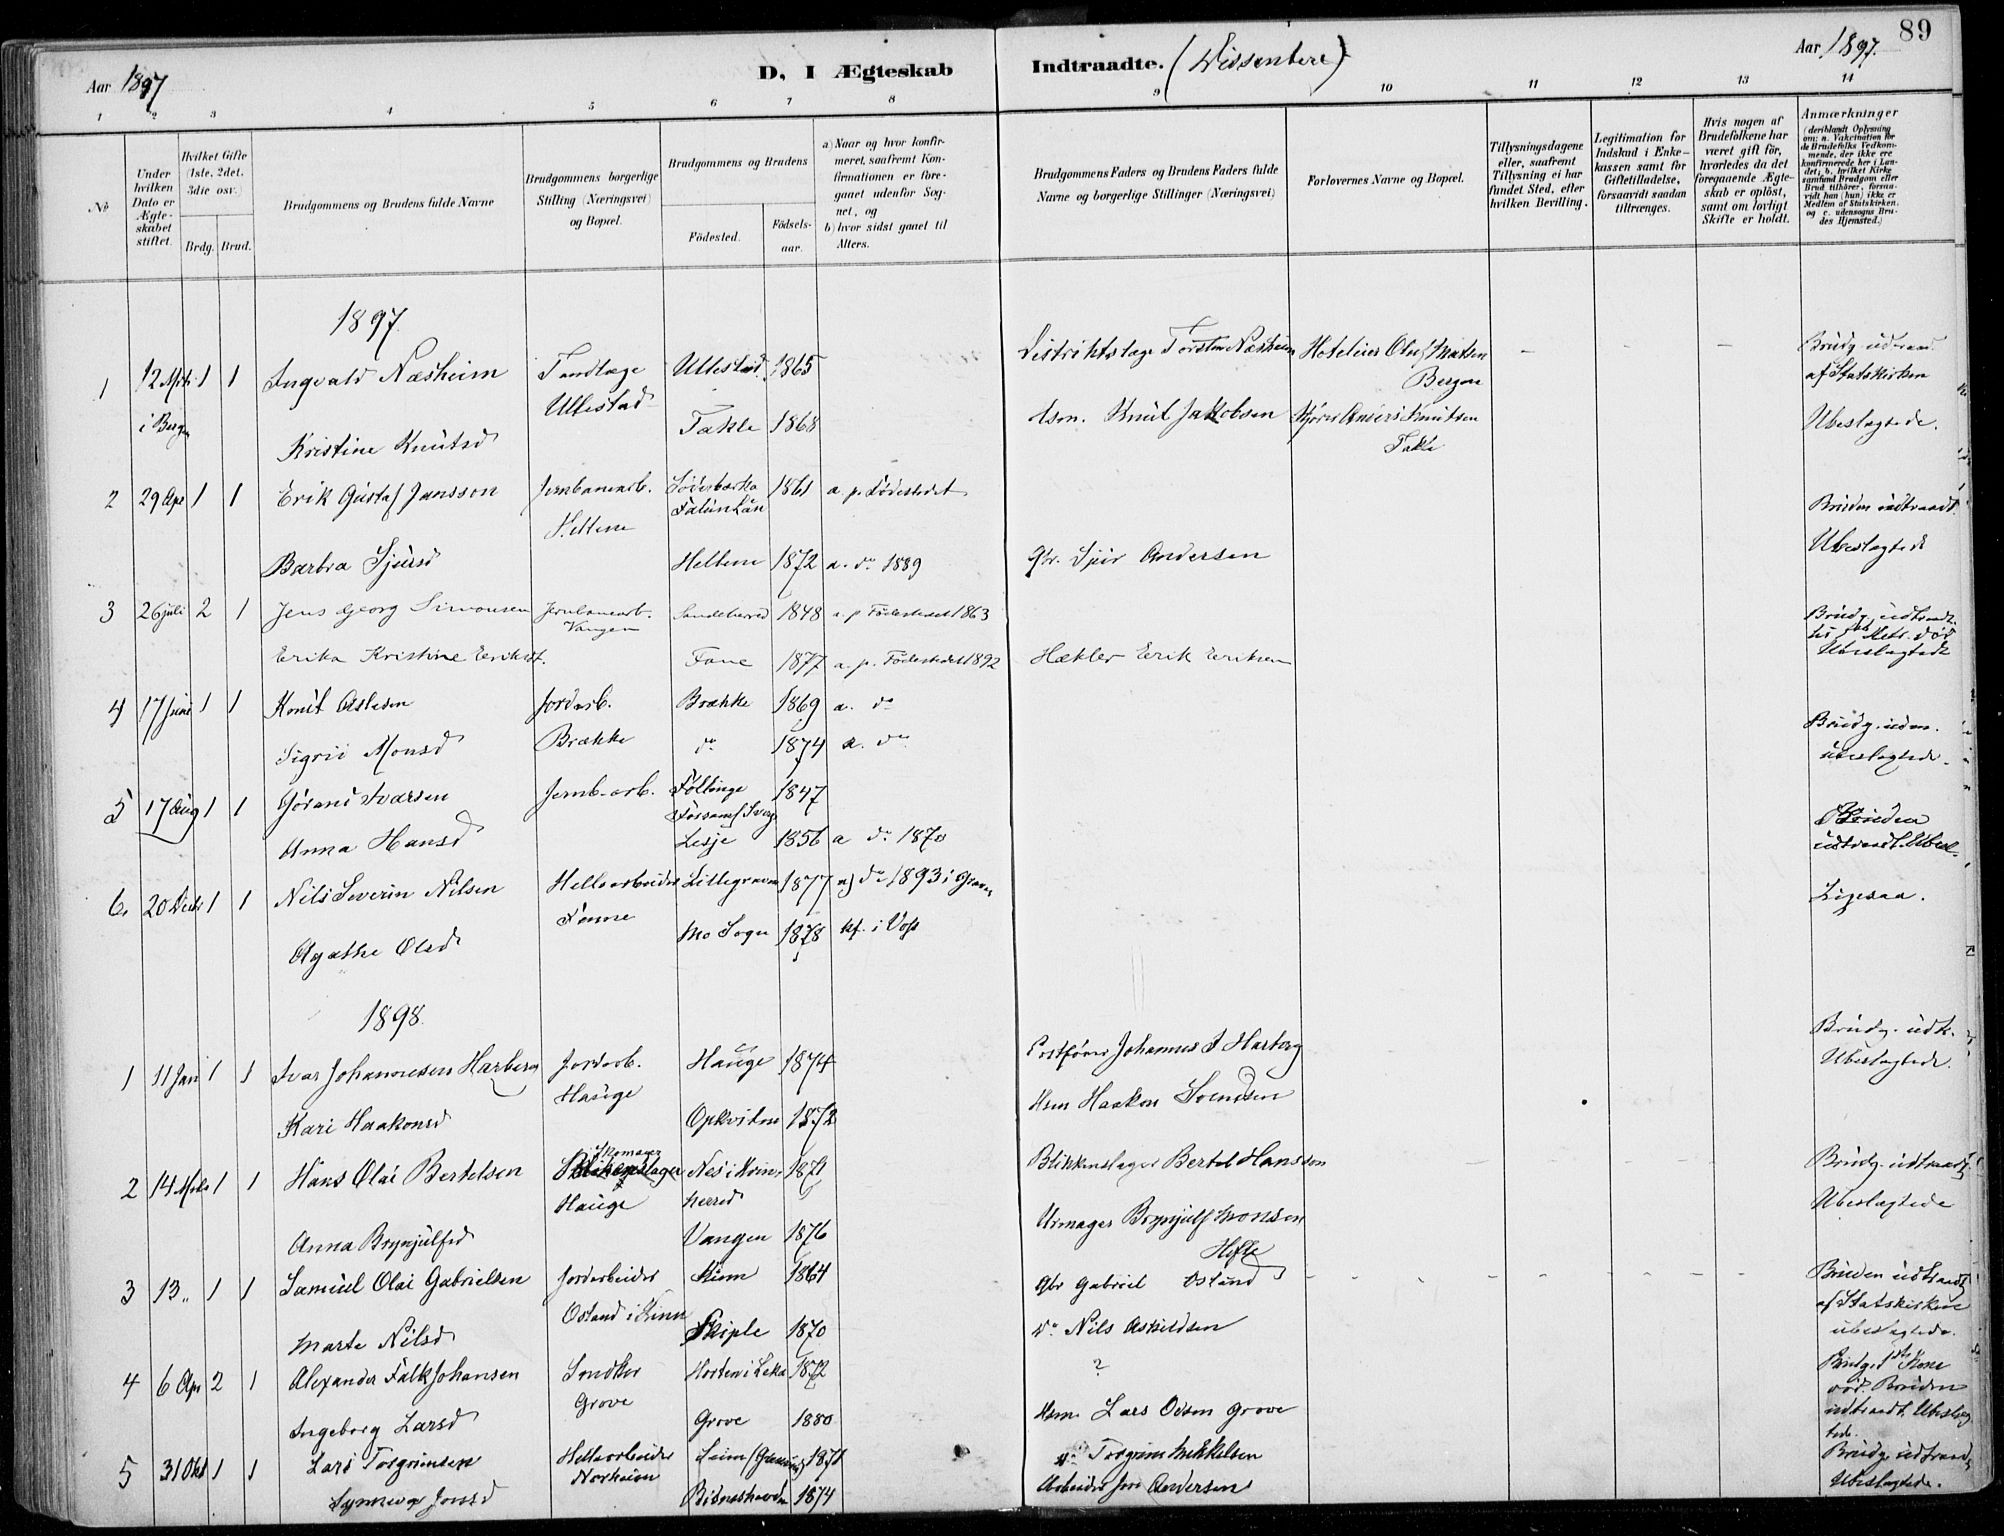 89
Aar 1897
D, I Ægteskab Indtraadte. (Dissentere)
Aar 1897.
1 2 3 4 5 6 7 8 9 10 11 12 13 14
No
Under hvilken Dato er Ægte-skabet stiftet.
Hvilket Gifte (1ste, 2det, 3die osv.)
Brdg. Brud.
Brudgommens og Brudens fulde Navne
Brudgommens borgerlige Stilling (Næringsvei) og Bopæl.
Brudgommens og Brudens
Fødested. Fødsels-aar.
a) Naar og hvor konfir-meret, saafremt Kon-firmationen er fore-gaaet udenfor Sog-net, og
b) hvor sidst gaaet til Alters.
Brudgommens Faders og Brudens Faders fulde Navne og borgerlige Stillinger (Næringsvei)
Forlovernes Navne og Bopæl.
Tillysningsdagene eller, saafremt Tillysning ei har fundet Sted, efter hvilken Bevilling.
Legitimation for Indskud i Enke-kassen samt for Giftetilladelse, forsaavidt saadan tiltrænges.
Hvis nogen af Brudefolkene har været gift før, hvorledes da det foregaaende Ægte-skab er opløst, samt om lovligt Skifte er holdt.
Anmærkninger
(deriblandt Oplysning om: a. Vakcination for de Brudefolks Vedkom-mende, der ikke ere konfirmerede her i Lan-det; b. hvilket Kirke-samfund Brudgom eller Brud tilhører, forsaa-vidt han (hun) ikke er Medlem af Statskirken, og c. udensogns Bru-des Hjemsted.)
1897
1 12 Mrts 1 1 Ingvald Næsheim Tandlæge Ullestad 1865 Distriktslæge Torsten Næsheim Hoteleier Oluf Madsen - - - Brudg. udtraad
i Bergen Ullestad Bergen af Statskirken
Kristine Knutsd Takle 1868 Knut Jakobsen Anders Knutsen Ubeslægtede.
Takle
2 29 Apr 1 1 Erik Gustaf Jansson Jernbanearb. Söderbarka 1861 a. p. Fødestedet Bruden indtraadt
Heltene Falun Län
Barbra Sjursd Heltene 1872 a. do 1889 Gbr. Sjur Andersen Ubeslægtede
3 26 juli 2 1 Jens Georg Simonsen Jernbanearb. Sandeherred 1848 a. p. Fødestedet 1863 Brudg. udtraadt
Vangen
Erika Kristine Eriksdt. Fane 1877 a. p. Fødestedet 1892 Hækler Erik Eriksen Ubeslægtede
4 17 Juni 1 1 Knut Aslesen Jordarb. Brække 1869 a. do Brudg. uden.
Sigrii Monsd Brække do 1874 a. do ubeslægtede.
5 17 Aug 1 1 Göran Ivarsen Jernb-arb. Föllinge 1847 Bruden
Anna Hansd Lesje 1856 a do 1870 udtraadt. Ubesl.
6. 20 Decb 1 1 Nils Severin Nilsen Hellearbeider Lillegraven 1877 a) do 1893 i Graven Ligesaa.
Agathe Olsd Tenne Mo Sogn 1878 kf. i Voss
1898.
1 11 Jan 1 1 Ivar Johannesen Harberg Jordarb. Hauge 1874 Postfører Johannes I Harberg Brudg. udtr.
Kari Haakonsd Hauge Opkvitne 1872 Hsm Haakon Svendsen Ubeslægtede.
2 14 Mrts 1 1 Hans Olai Bertelsen Skomager Nes i Kvin- 1871 Blikkenslager Bertel Hansson - - - Brudg. udtraadt
Hauge herred
Anna Brynjulfsd Vangen 1876 Urmager Brynjulf Monsen Ubeslægtede
Hefte
3 13 „ 1 1 Samuel Olai Gabrielsen Jordarbeider Kinn 1864 Gbr Gabriel Ostand - - - - Bruden udtraadt
Ostand i Kinn af Statskirken
Marte Nilsd Skiple 1870 do Nils Askildsen ubeslægtede.
4 6 Apr 2 1 Alexander Falk Johansen Snedker Horten i Leka 1872 ? Brudgs 1ste Kone
Ingeborg Larsd Grove Grove 1880 Hsm. Lars Odsen Grove død. Bruden indtraadt. Ubeslæg
tede.
5 31 Okt 1 1 Lars Torgrimsen Hellearbeider Seim (Graven) 1871 do Torgrim Mikkelsen Brudg udtraadt
Synneva Jonsd Norheim 1874 Arbeider Jon Andersen Ubeslægtede.